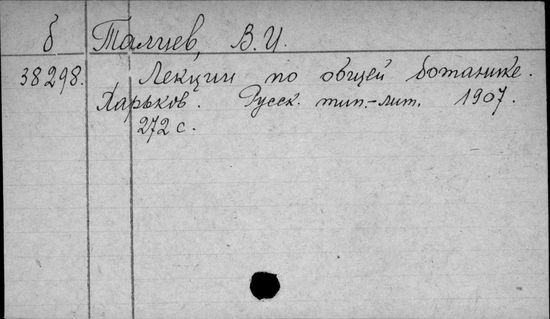 б Талиев, В.И.
38298. Лекции по общей ботанике.
Харьков. Русск. тип.-лит. 1907.
272 с.